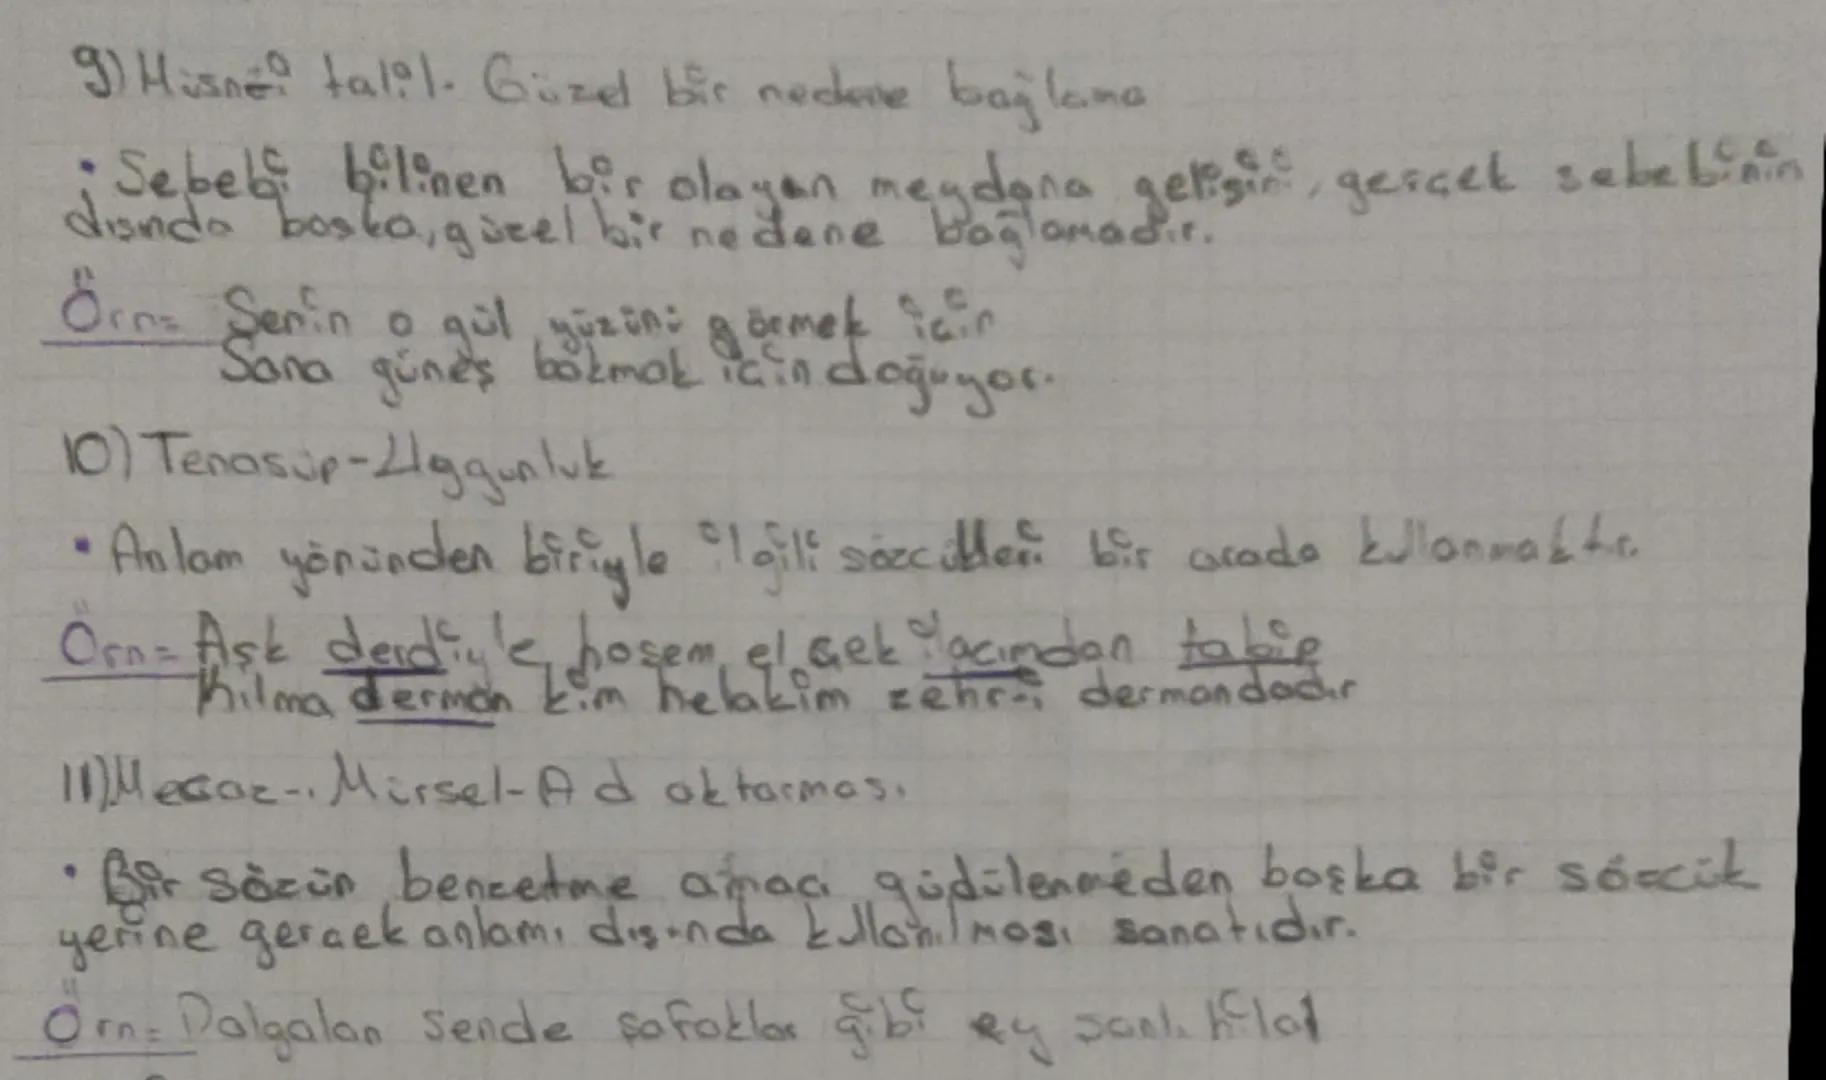 9) Hüsnei talil. Güzel bir nedene bağlama
• Sebebi bilinen bir olayın meydana gelişini, gerçek sebebinin
dışında başka, güzel bir nedene bağlamadır.
Örn= Senin o gül yüzünü görmek için
Sana güneş bakmak için doğuyor.
10) Tenasüp-Uygunluk
• Anlam yönünden biriyle ilgili sözcükleri bir arada kullanmaktır.
Örn= Aşk derdiyle hoşem el çek ilacımdan tabip
Kılma derman kim helakim zehr-i dermandadır
11) Mecaz-ı Mürsel-Ad aktarması
• Bir sözün benzetme amacı güdülenmeden başka bir sözcük
yerine gerçek anlamı dışında kullanılması sanatıdır.
Örn= Dalgalan sende şafaklar gibi ey şanlı hilal